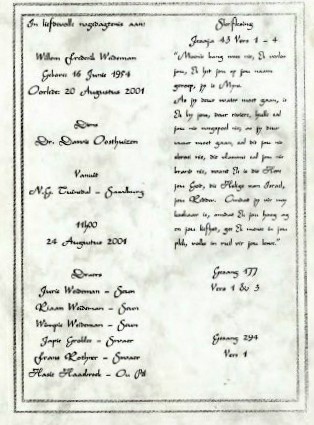 In liefdevolle nagedagtenis aan:
Willem Frederik Weideman
Gebore: 16 Junie 1954
Oorlede: 20 Augustus 2001
Diens
Dr. Dawie Oosthuizen
Vanuit
N.G. Tuinedal -
11h00
24 Augustus 2001
Draers
Jurie Weideman - Seun
Riaan Weideman - Seun
Wimpie Weideman - Seun
Japie Grobler - Swaer
Frans Rothner - Swaer
Hasie Haasbroek - Ou Pêl
Skriflesing
Jesaja 43 Vers 1 - 4
"Moenie bang wees nie, Ek verlos
jou, Ek het jou op jou naam
geroep, jy is Myne.
As jy deur water moet gaan, is
Ek by jou, deur riviere, hulle sal
jou nie wegspoel nie, as jy deur
vuur moet gaan, sal dit jou nie
skroei nie, die vlamme sal jou nie
brand nie, want Ek is die Here
jou God, die Heilige van Israel,
jou Redder. Omdat jy vir my
kosbaar is, omdat Ek jou hoog ag
en jou liefhet, gee Ek mense in jou
plek, volke in ruil vir jou lewe."
Gesang 177
Vers 1 &v 3
Gesang 294
Vers 1